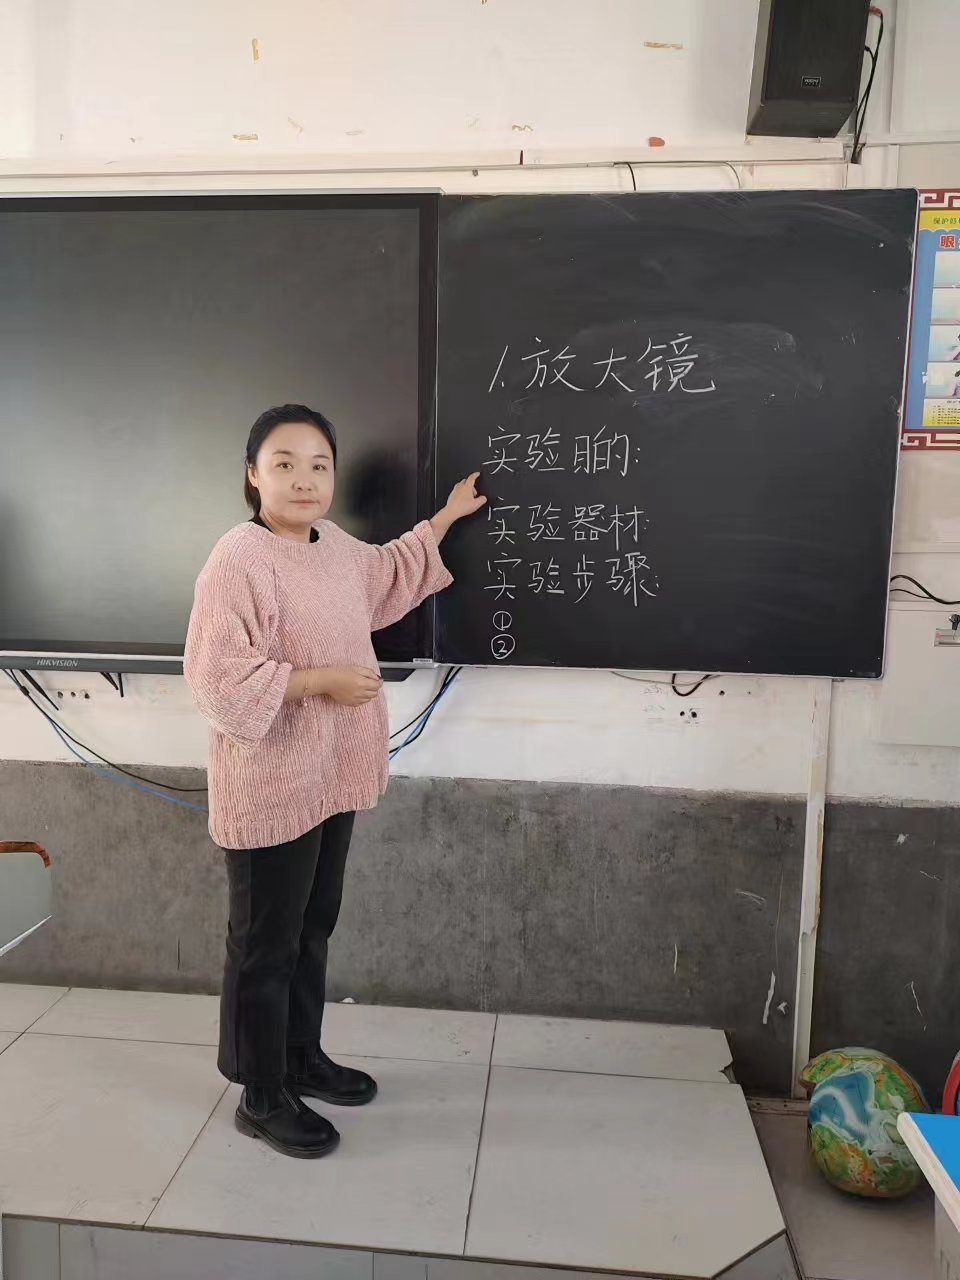 1.放大镜
实验目的:
实验器材:
实验步骤:
①
②
HIKVISION
保护视
眼